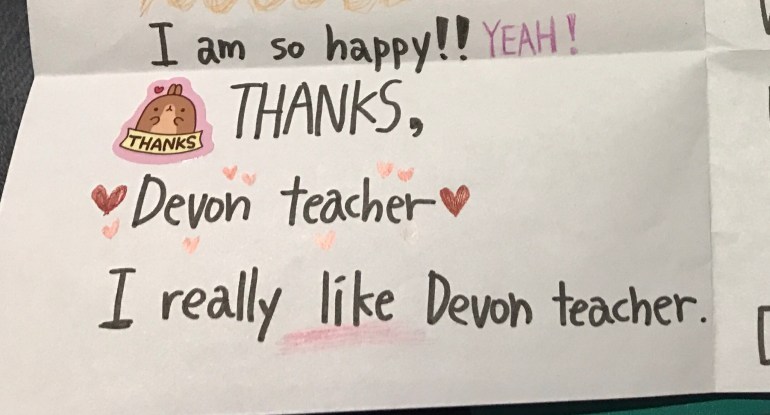 I am so happy!! YEAH!
THANKS
THANKS,
Devon teacher
I really like Devon teacher.